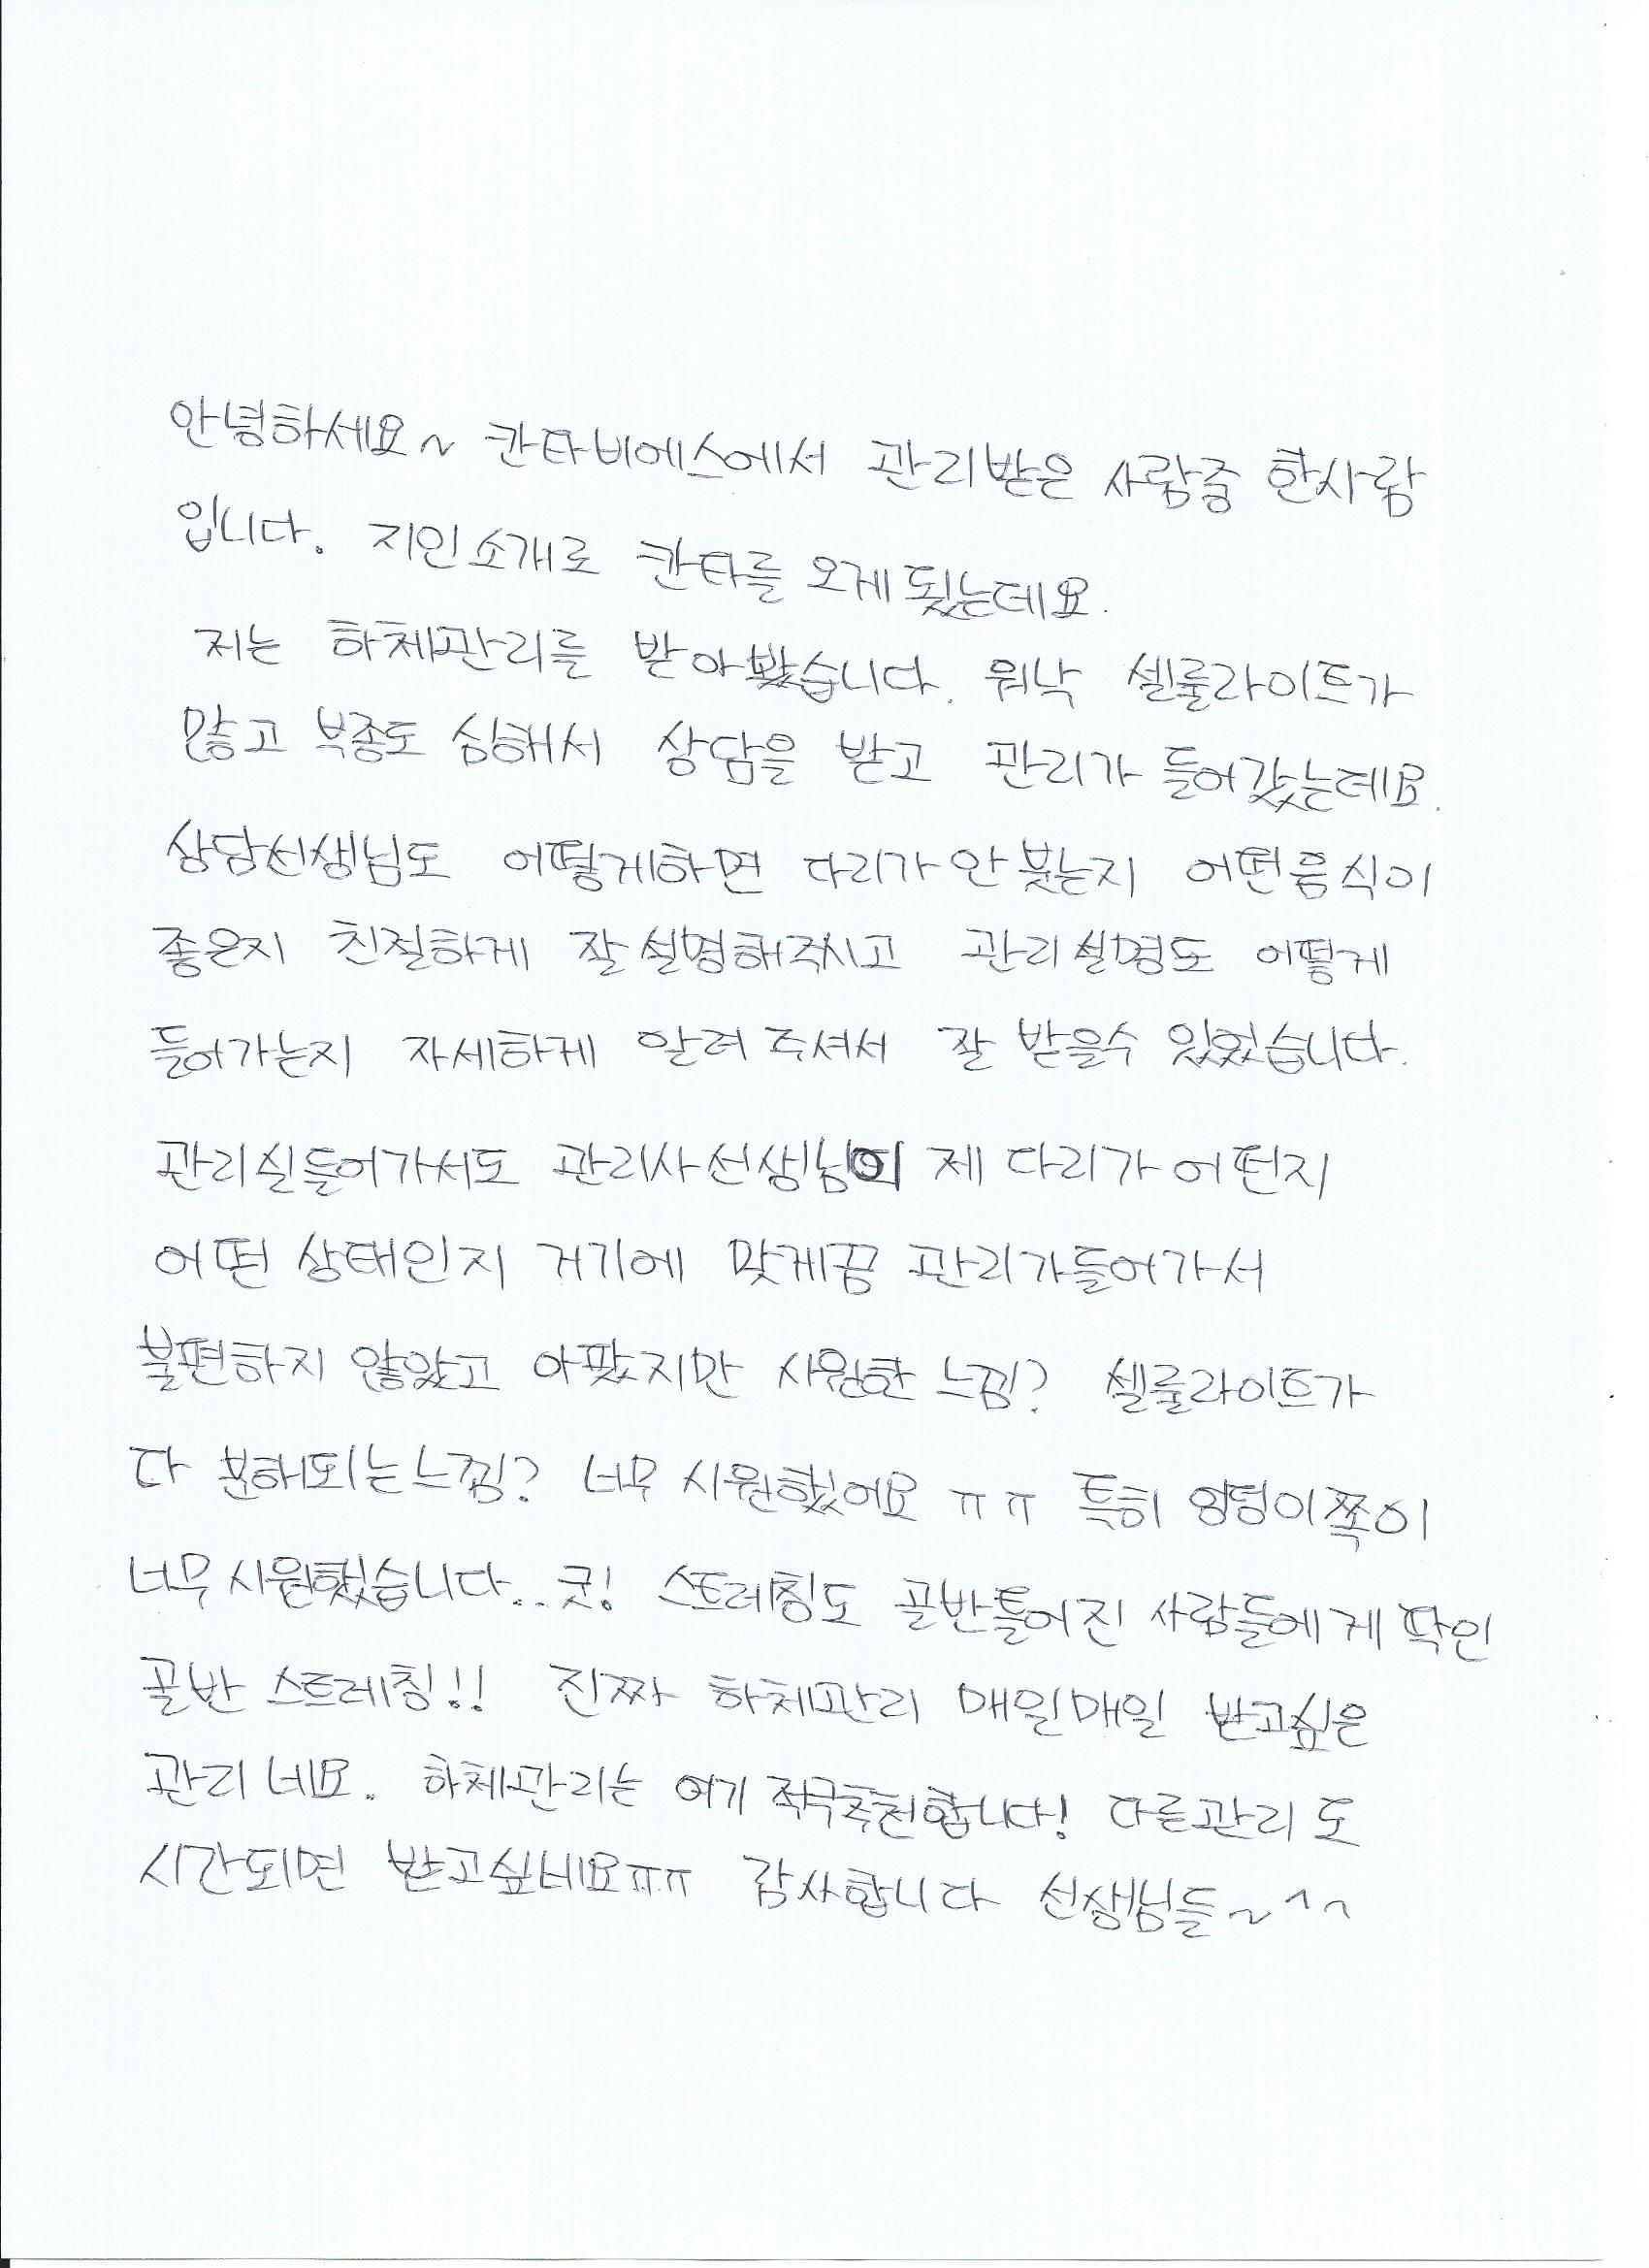 안녕하세요~ 칸타비에스에서 관리받은 사람중 한사람
입니다. 지인소개로 칸타를 오게됬는데요.
저는 하체관리를 받아봤습니다. 워낙 셀룰라이트가
많고 부종도 심해서 상담을 받고 관리가 들어갔는데요.
상담선생님도 어떻게하면 다리가 안 붓는지 어떤음식이
좋은지 친절하게 잘 설명해주시고 관리 설명도 어떻게
들어가는지 자세하게 알려 주셔서 잘 받을수 있었습니다.
관리실들어가서도 관리사선생님이 제 다리가 어떤지
어떤 상태인지 거기에 맞게끔 관리가들어가서
불편하지 않았고 아팠지만 시원한 느낌? 셀룰라이트가
다 분해되는느낌? 너무 시원했어요 ㅠㅠ 특히 엉덩이쪽이
너무 시원했습니다.. 굿! 스트레칭도 골반틀어진 사람들에게 딱인
골반 스트레칭!! 진짜 하체관리 매일매일 받고싶은
관리네요. 하체관리는 여기 적극추천합니다! 다른관리도
시간되면 받고싶네요ㅠㅠ 감사합니다 선생님들~^^